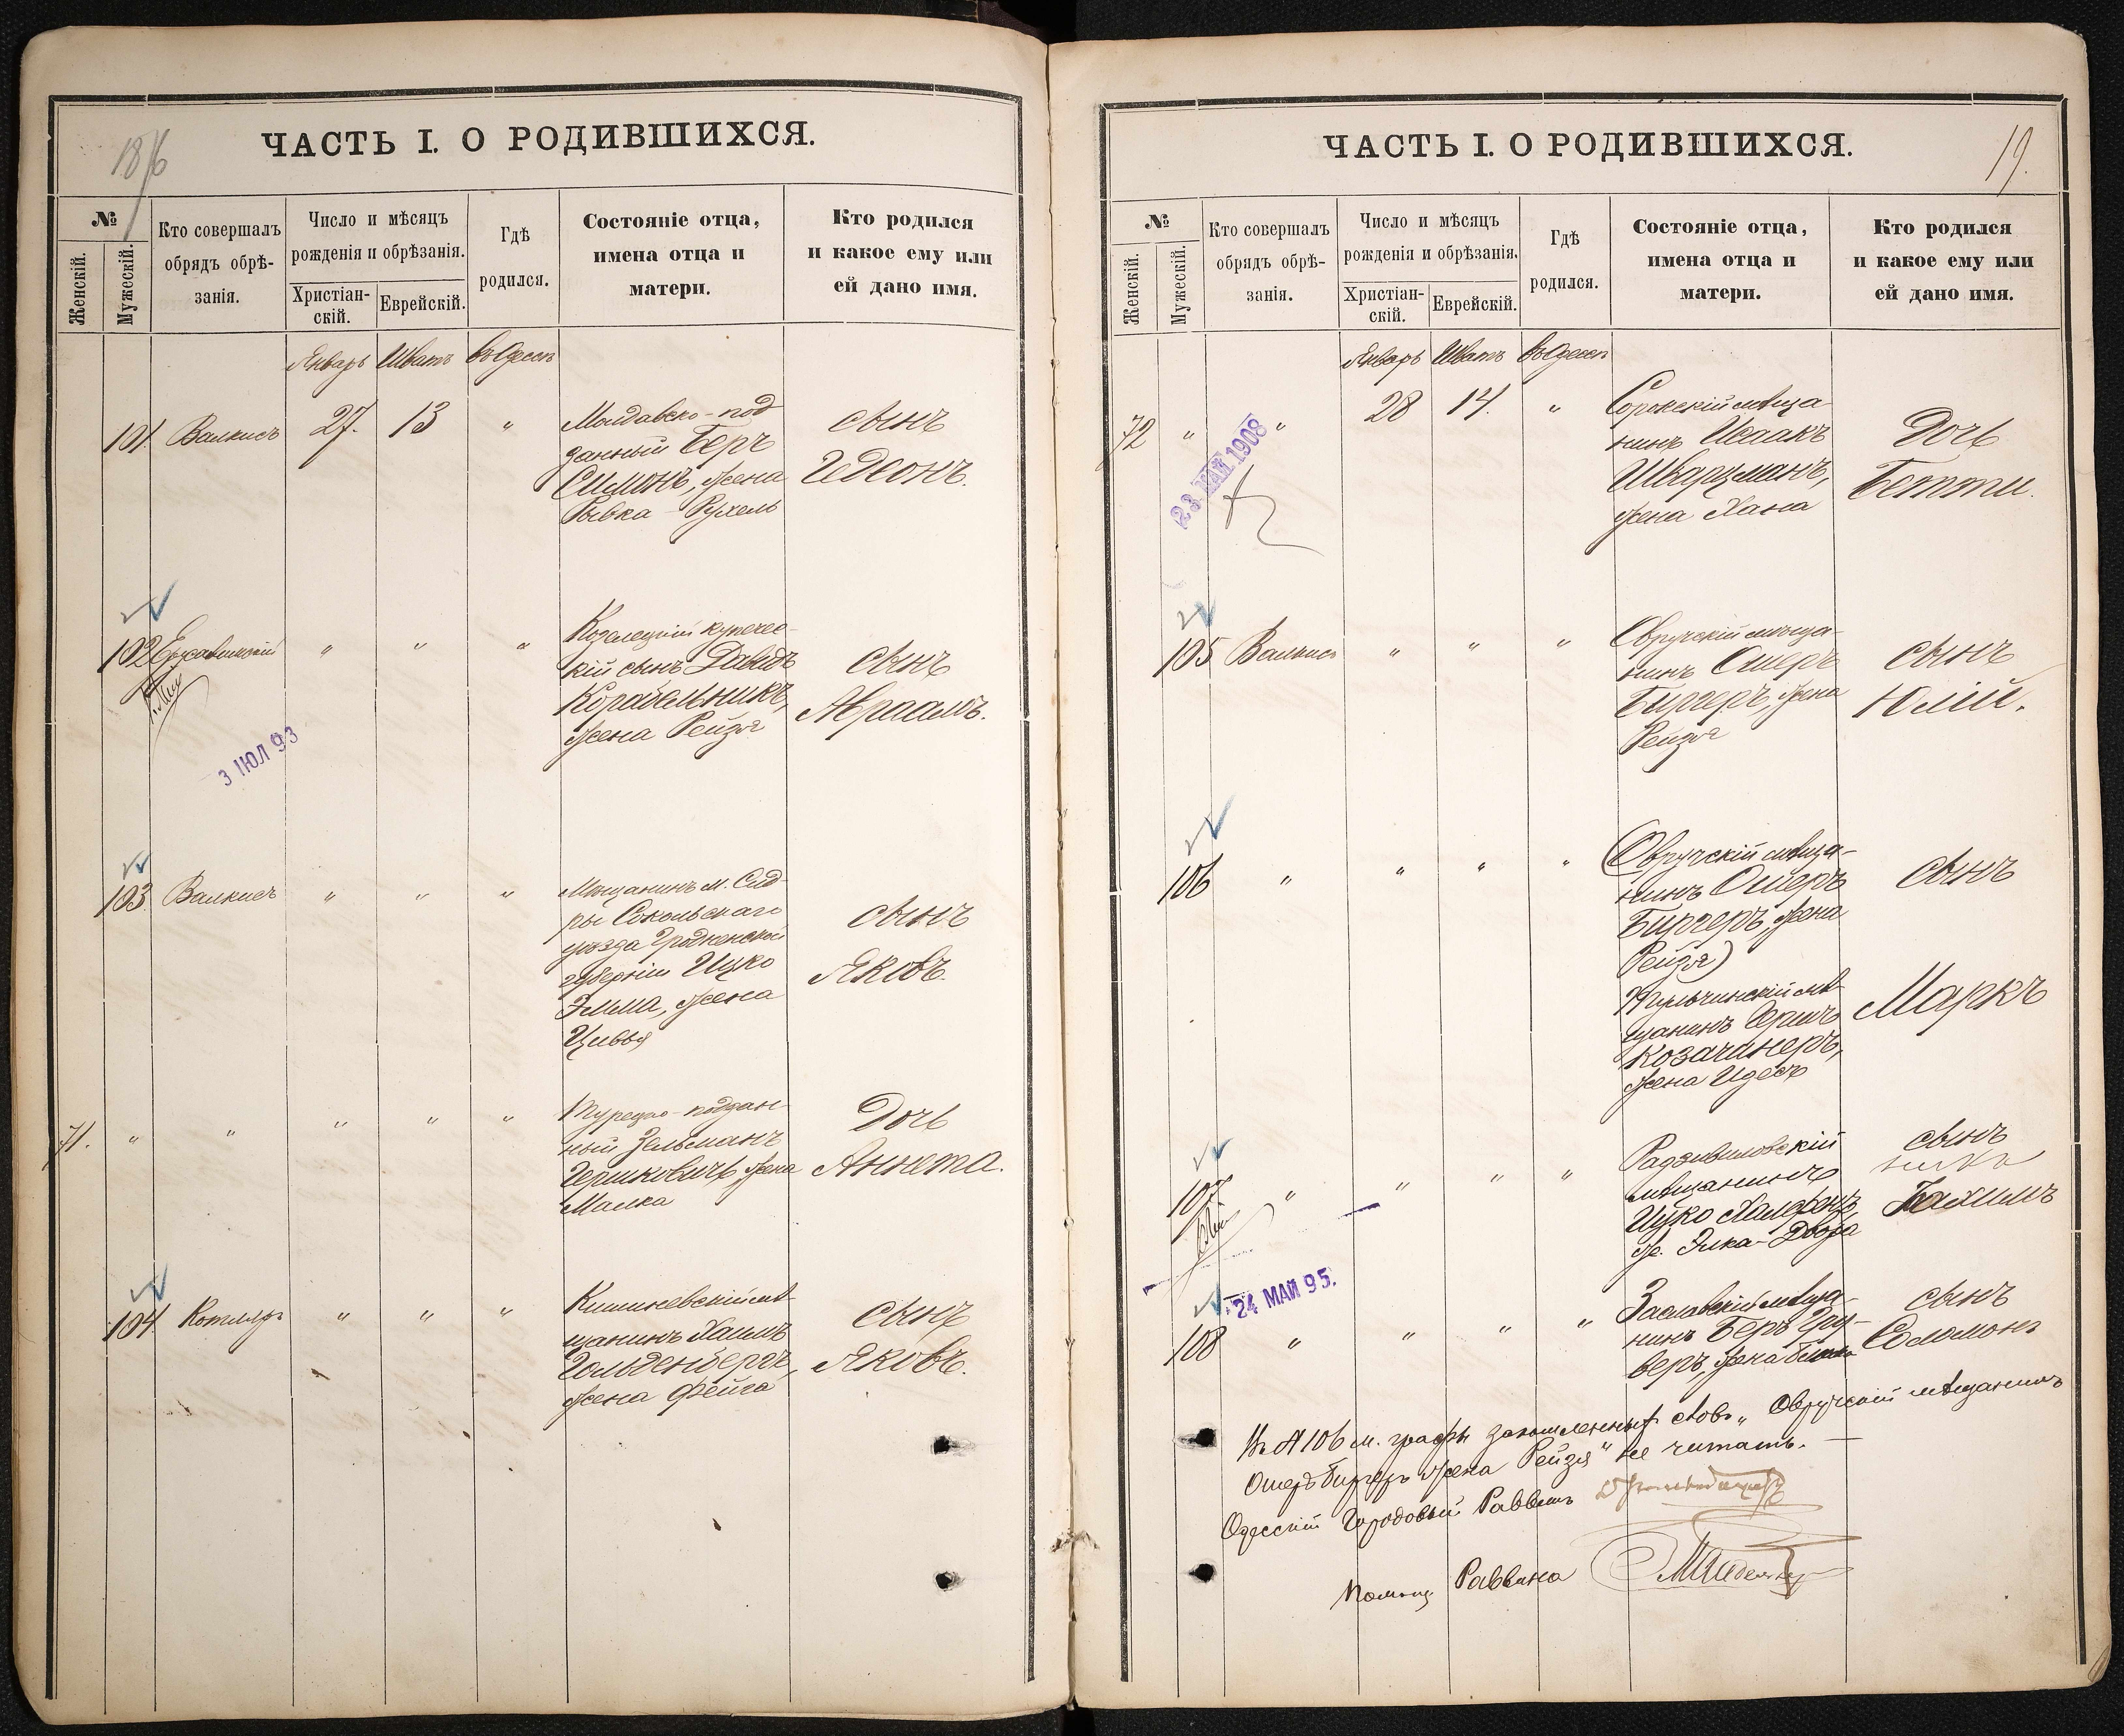 ЧАСТЬ I. О РОДИВШИХСЯ.
№
Женскій.
Мужескій.
Кто совершалъ
обрядъ обрѣ-
занія.
Число и мѣсяцъ
рожденія и обрѣзанія.
Христіан-
скій.
Еврейскій.
Гдѣ
родился.
Состояніе отца,
имена отца и
матери.
Кто родился
и какое ему или
ей дано имя.
Январь Шватъ въ Одессѣ
101. Валкисъ 27. 13 "
Молдавско-под
данный Беръ
Симонъ, жена
Рывка-Рухель
сынъ
Гедеонъ.
102 " " "
Козелецкій купечес-
кій сынъ Давидъ
Корабельникъ,
жена Рейзя
сынъ
Авраамъ.
3 ІЮЛ 93
103. Валкисъ " " "
Мѣщанинъ м. Сид-
ры Сокольскаго
уѣзда Гродненской
губерніи Ицко
Элма, жена
Цивья
сынъ
Яковъ.
71. " " " " "
Турецко-поддан-
ный Зельманъ
Гершковичъ, жена
Малка
Дочь
Аннета.
104 Котляръ " " "
Кишиневскій мѣ-
щанинъ Хаимъ
Гольденбергъ,
жена Фейга
сынъ
Яковъ.
ЧАСТЬ I. О РОДИВШИХСЯ.
19.
№
Женскій.
Мужескій.
Кто совершалъ
обрядъ обрѣ-
занія.
Число и мѣсяцъ
рожденія и обрѣзанія.
Христіан-
скій.
Еврейскій.
Гдѣ
родился.
Состояніе отца,
имена отца и
матери.
Кто родился
и какое ему или
ей дано имя.
Январь Шватъ въ Одессѣ
72 " " 28 14. "
Сорокскій мѣща-
нинъ Исаакъ
Шварцманъ,
жена Хана
Дочь
Бетти.
23 МАЙ 1908
105 Валкисъ " " "
Овручскій мѣща-
нинъ Ошеръ
Биргеръ, жена
Рейзя
сынъ
Юлій.
106 " " " "
(Овручскій мѣща-
нинъ Ошеръ
Биргеръ, жена
Рейзя)
Тульчинскій мѣ-
щанинъ Гершъ
Козачинеръ,
жена Идесъ
сынъ
Маркъ
107 " " " "
Радзивиловскій
мѣщанинъ
Ицко Халфенъ
ж. Элка-Двойра
сынъ
24 МАЙ 95.
108 " " " "
Заславскій мѣща-
нинъ Беръ Гру-
беръ, жена
сынъ
Соломонъ
Въ № 106 м. графы зачеркленныхъ словъ „Овручскій мѣщанинъ
Ошеръ Биргеръ жена Рейзя" не читать.
Одесскій Городовой Раввинъ
Помощ Раввина